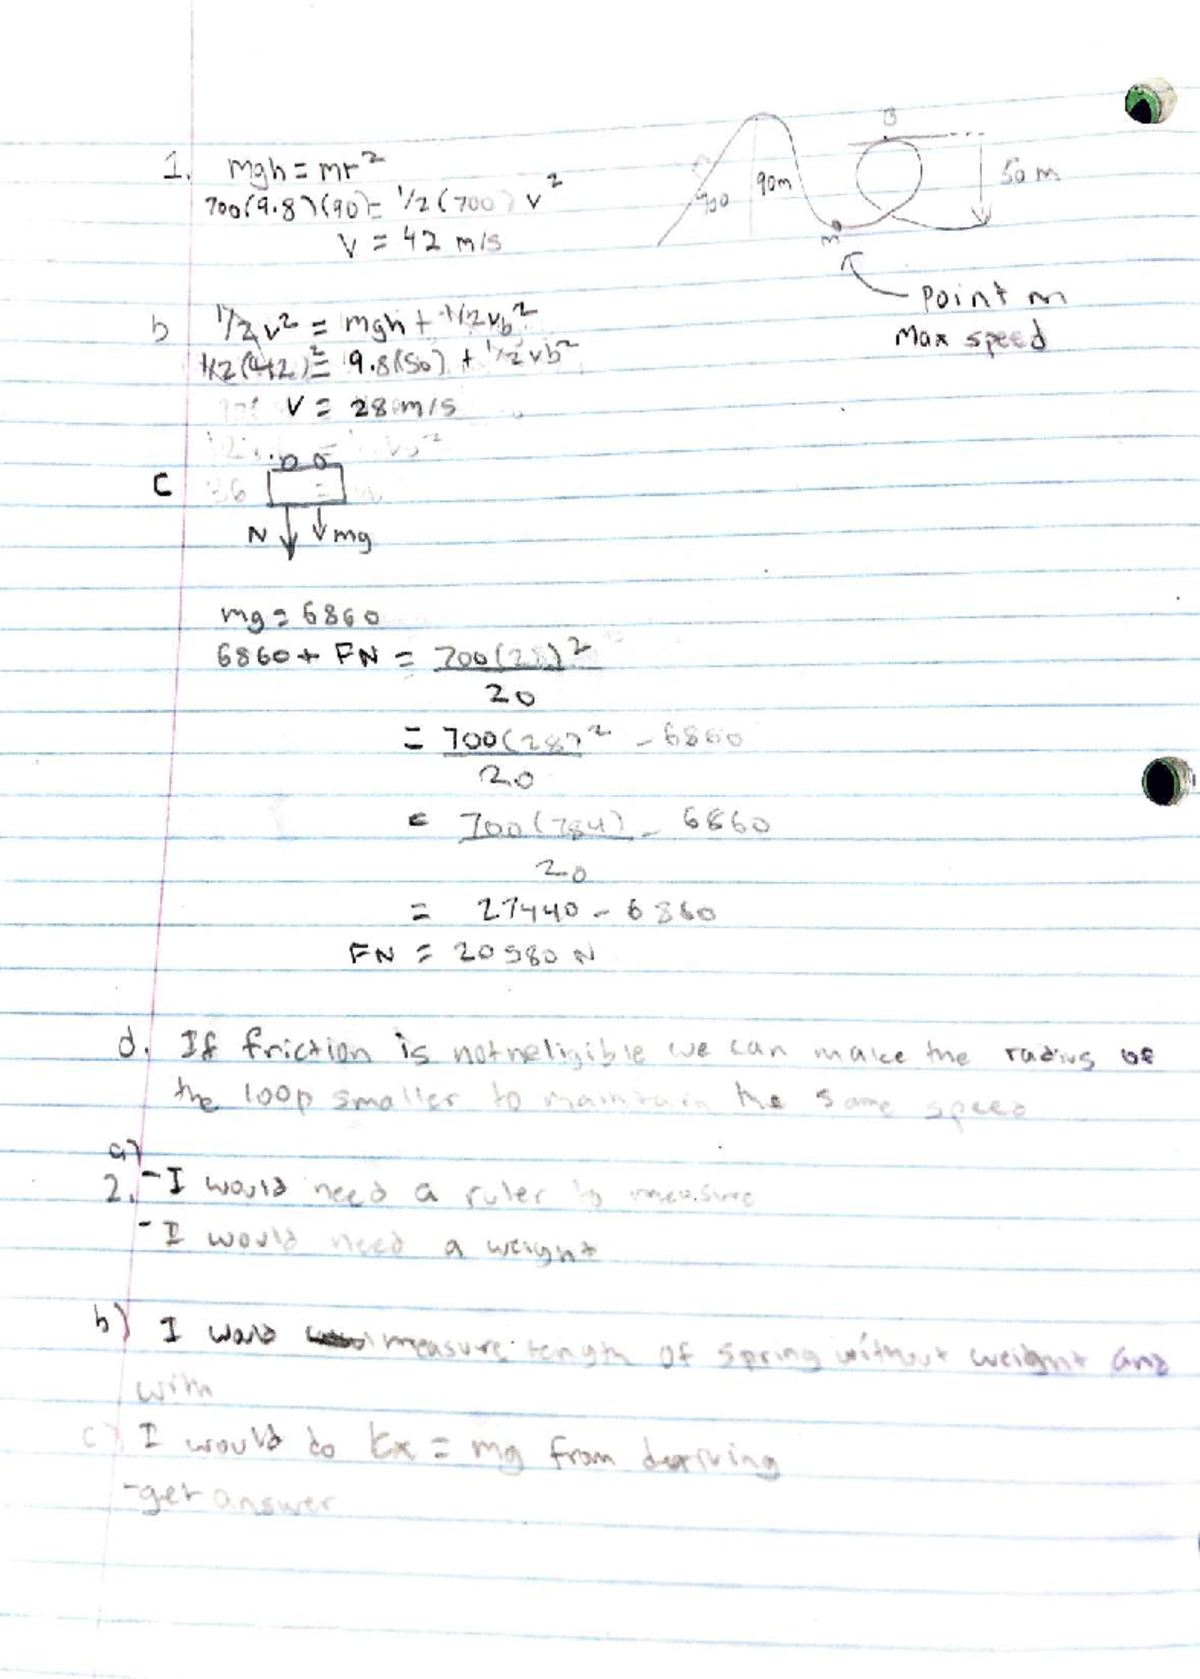 1. mgh = mr²
700(9.8)(90) = 1/2(700) v²
V = 42 m/s
B
50 m
90m
700
m
Point m
Max speed
b 1/2 v² = mgh + 1/2 vb²
1/2(42)² = 9.8(50) + 1/2 vb²
V = 28 m/s
C
N mg
mg = 6860
6860 + FN = 700(28)²
20
= 700(28)² - 6860
20
= 700(784) - 6860
20
= 27440 - 6860
FN = 20580 N
d. If friction is not neligible we can make the radius of
the loop smaller to maintain the same speed
a)
2. - I would need a ruler to measure
- I would need a weight
b) I would measure length of spring without weight and
with
c) I would do kx = mg from deriving
- get answer